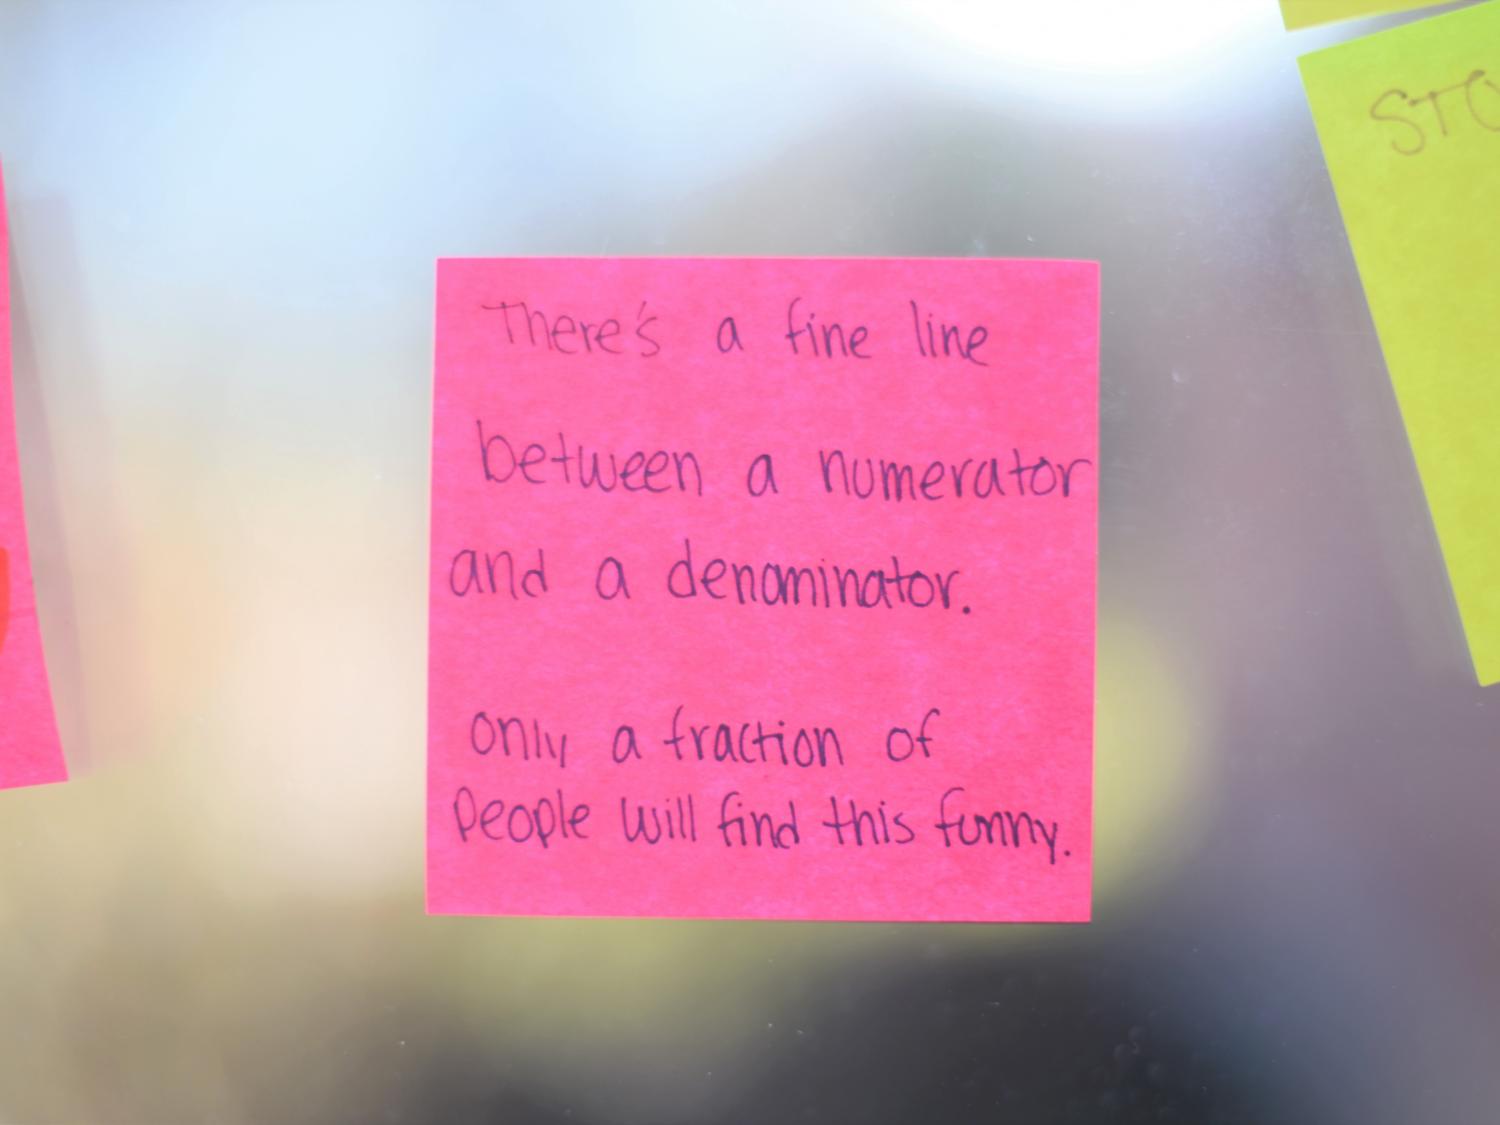 There's a fine line
between a numerator
and a denominator.
only a fraction of
People will find this funny.